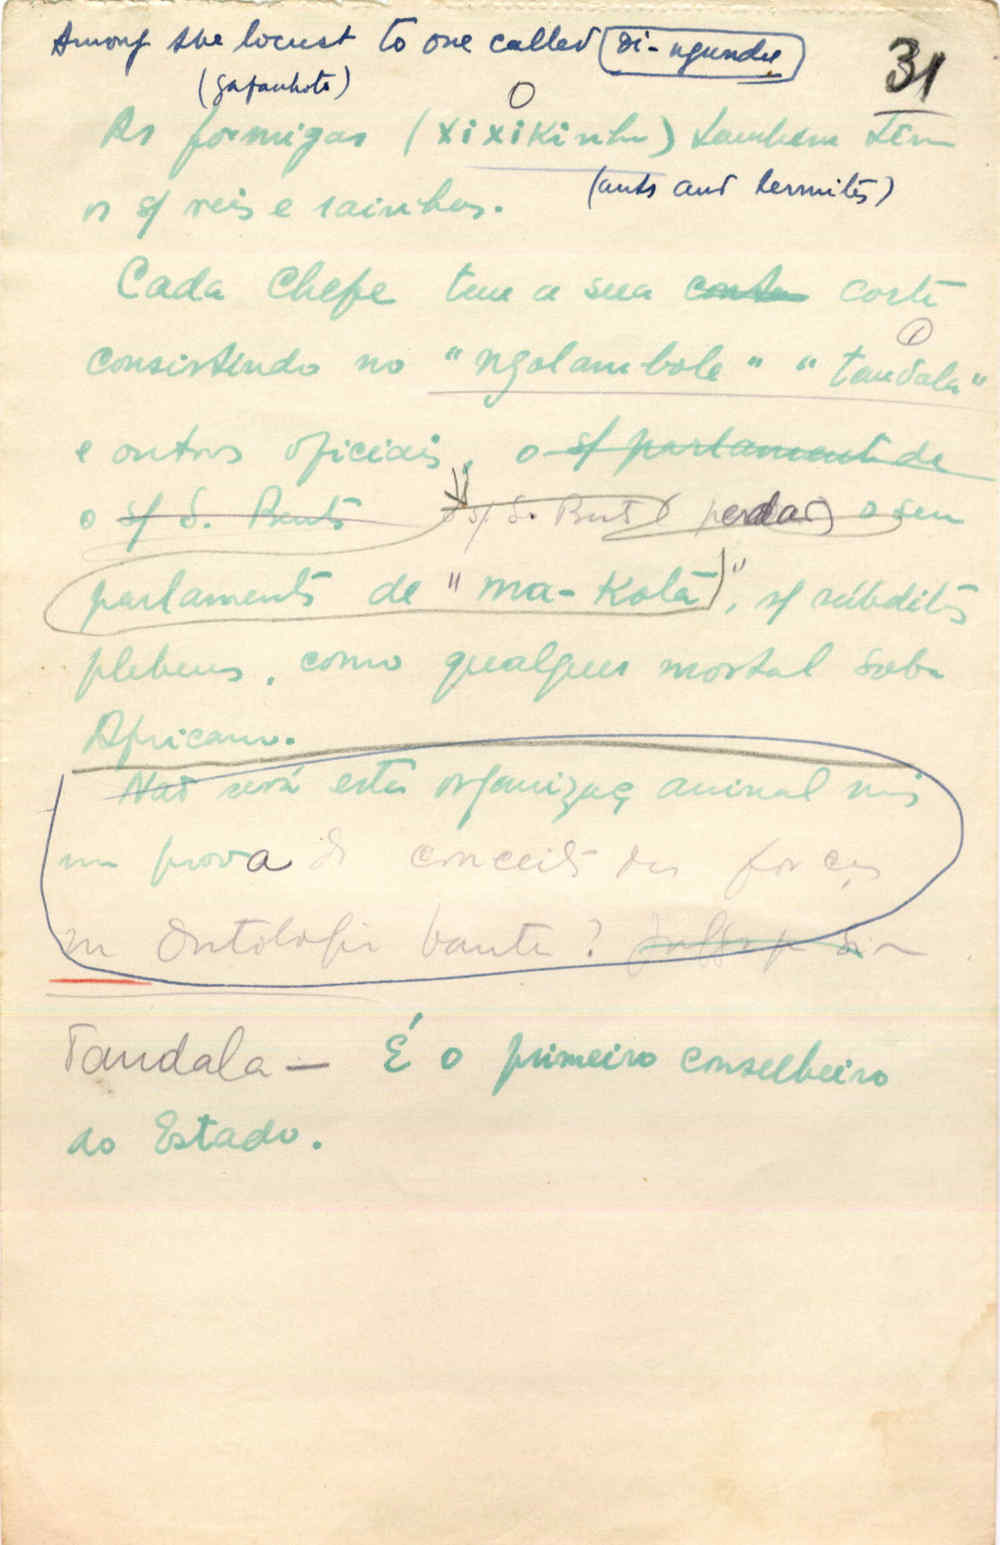 Among the locust to one called di-ngundu
31
(gafanhoto)
As formigas (xixikinhu) também têm
(ants and termites)
os s/ reis e rainhas.
Cada Chefe tem a sua corte
consistindo no "ngolambole" "tandala"
e outros oficiais, o s/ parlamento de
o s/ S. Bento o s/ S. Bento (perdão) o seu
parlamento de "ma-kota", s/ súbditos
plebeus, como qualquer mortal soba
Africano.
Não será esta organizaç animal mais
um prova do conceito das forças
na Ontologia bantu?
Tandala — É o primeiro conselheiro
do Estado.